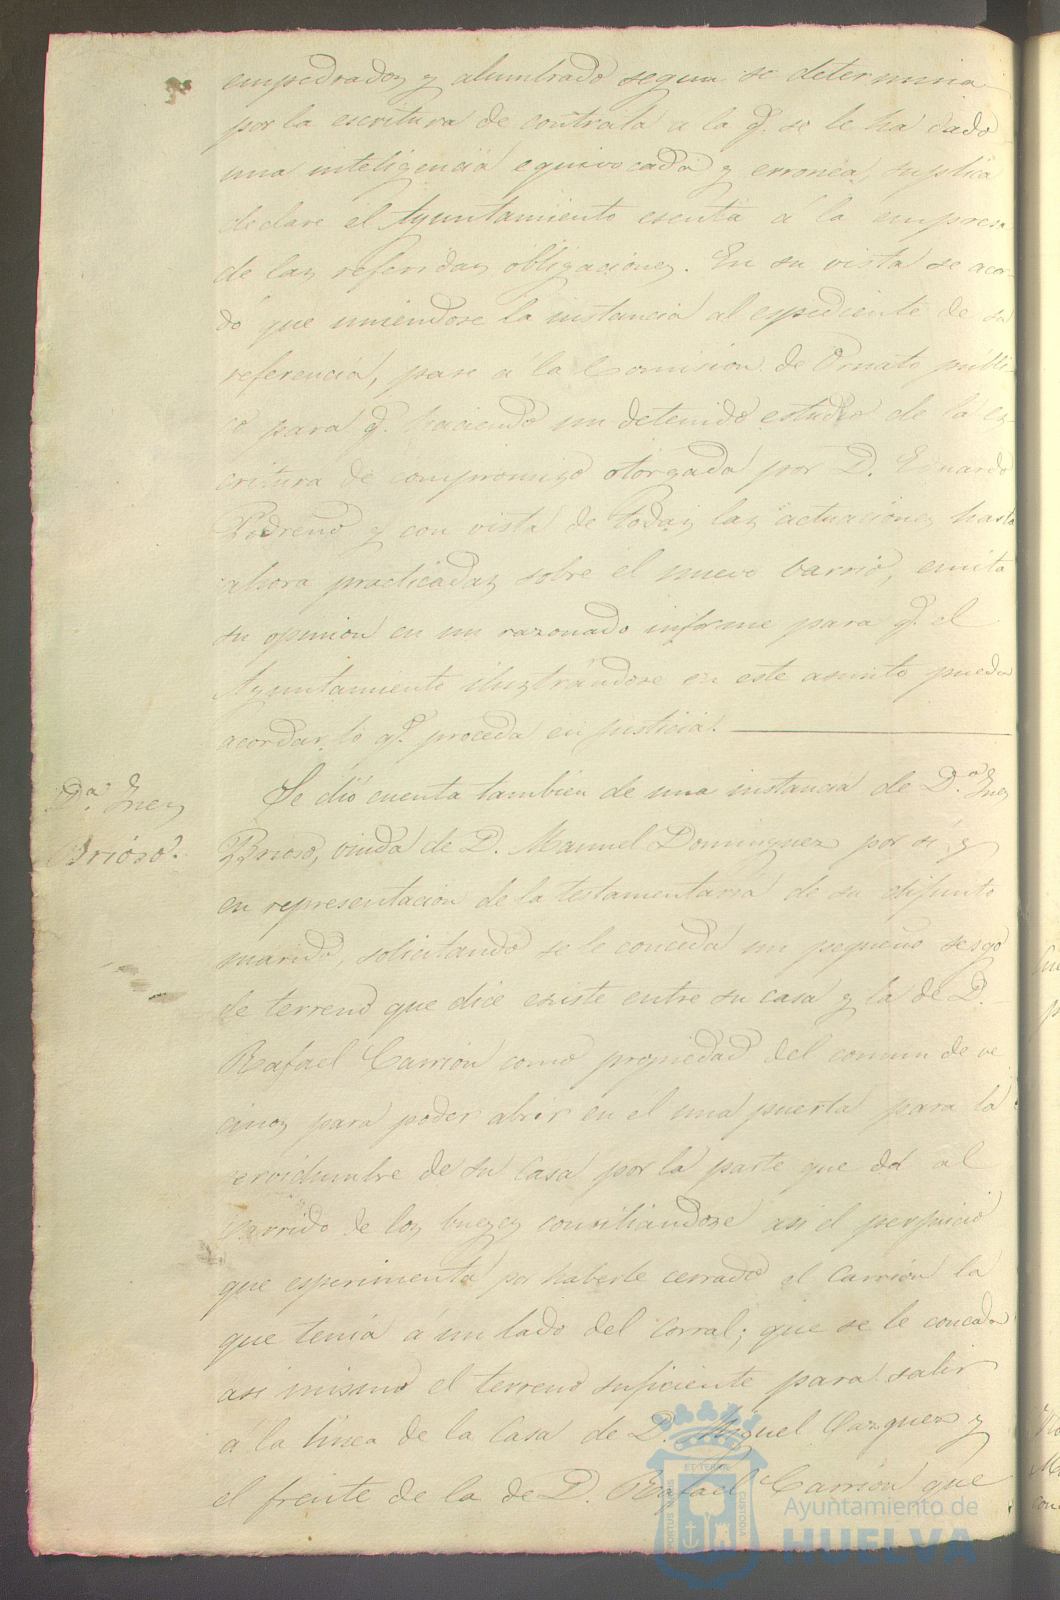 empedrados y alumbrado segun se determina
por la escritura de contrata a la q.e se le ha dado
una inteligencia equivocada y erronea, suplica
declare el Ayuntamiento esenta á la empresa
de las referidas obligaciones. En su vista se acor-
dó que uniendose la instancia al espediente de su
referencia, pase á la Comision de Ornato públi-
co para q.e haciendo un detenido estudio de la es-
critura de compromiso otorgada por D. Eduardo
Pedreño y con vista de todas las actuaciones hasta
ahora practicadas sobre el nuevo barrio, emita
su opinion en un razonado informe para q.e el
Ayuntamiento ilustrándose en este asunto pueda
acordar lo q.e proceda en justicia.
D.a Ines
Brioso.
Se dió cuenta tambien de una instancia de D.a Ines
Brioso, viuda de D. Manuel Dominguez por sí y
en representacion de la testamentaria de su difunto
marido, solicitando se le conceda un pequeño sesgo
de terreno que dice existe entre su casa y la de D.
Rafael Carrion como propiedad del comun de ve
cinos para poder abrir en el una puerta para la
servidumbre de su casa por la parte que dá al
barrido de los bueyes conciliandose asi el perjuicio
que esperimenta por haberle cerrado el Carrion la
que tenia á un lado del corral; que se le conceda
asi mismo el terreno suficiente para salir
á la linea de la casa de D. Miguel Vazquez y
el frente de la de D. Rafael Carrion que
Ayuntamiento de
HUELVA